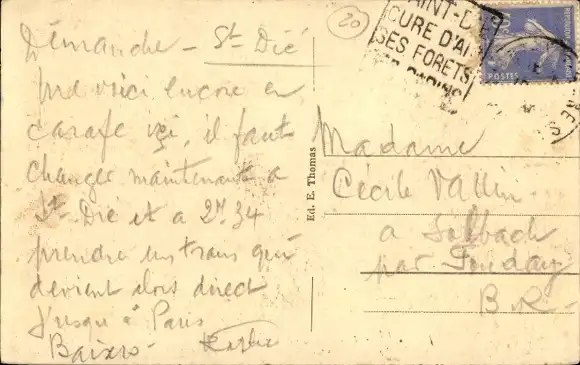 Dimanche - St Dié
me voici encore en
carafe ici, il faut
changer maintenant a
St Dié et a 2h.34
prendre un train qui
devient alors direct
jusqu'à Paris
Baixro-
20
SAINT-DIÉ
CURE D'AI
SES FORETS
POSTES
Ed. E. Thomas
Madame
Cécile Vallin
a Solbach
par Fouday
B-R-